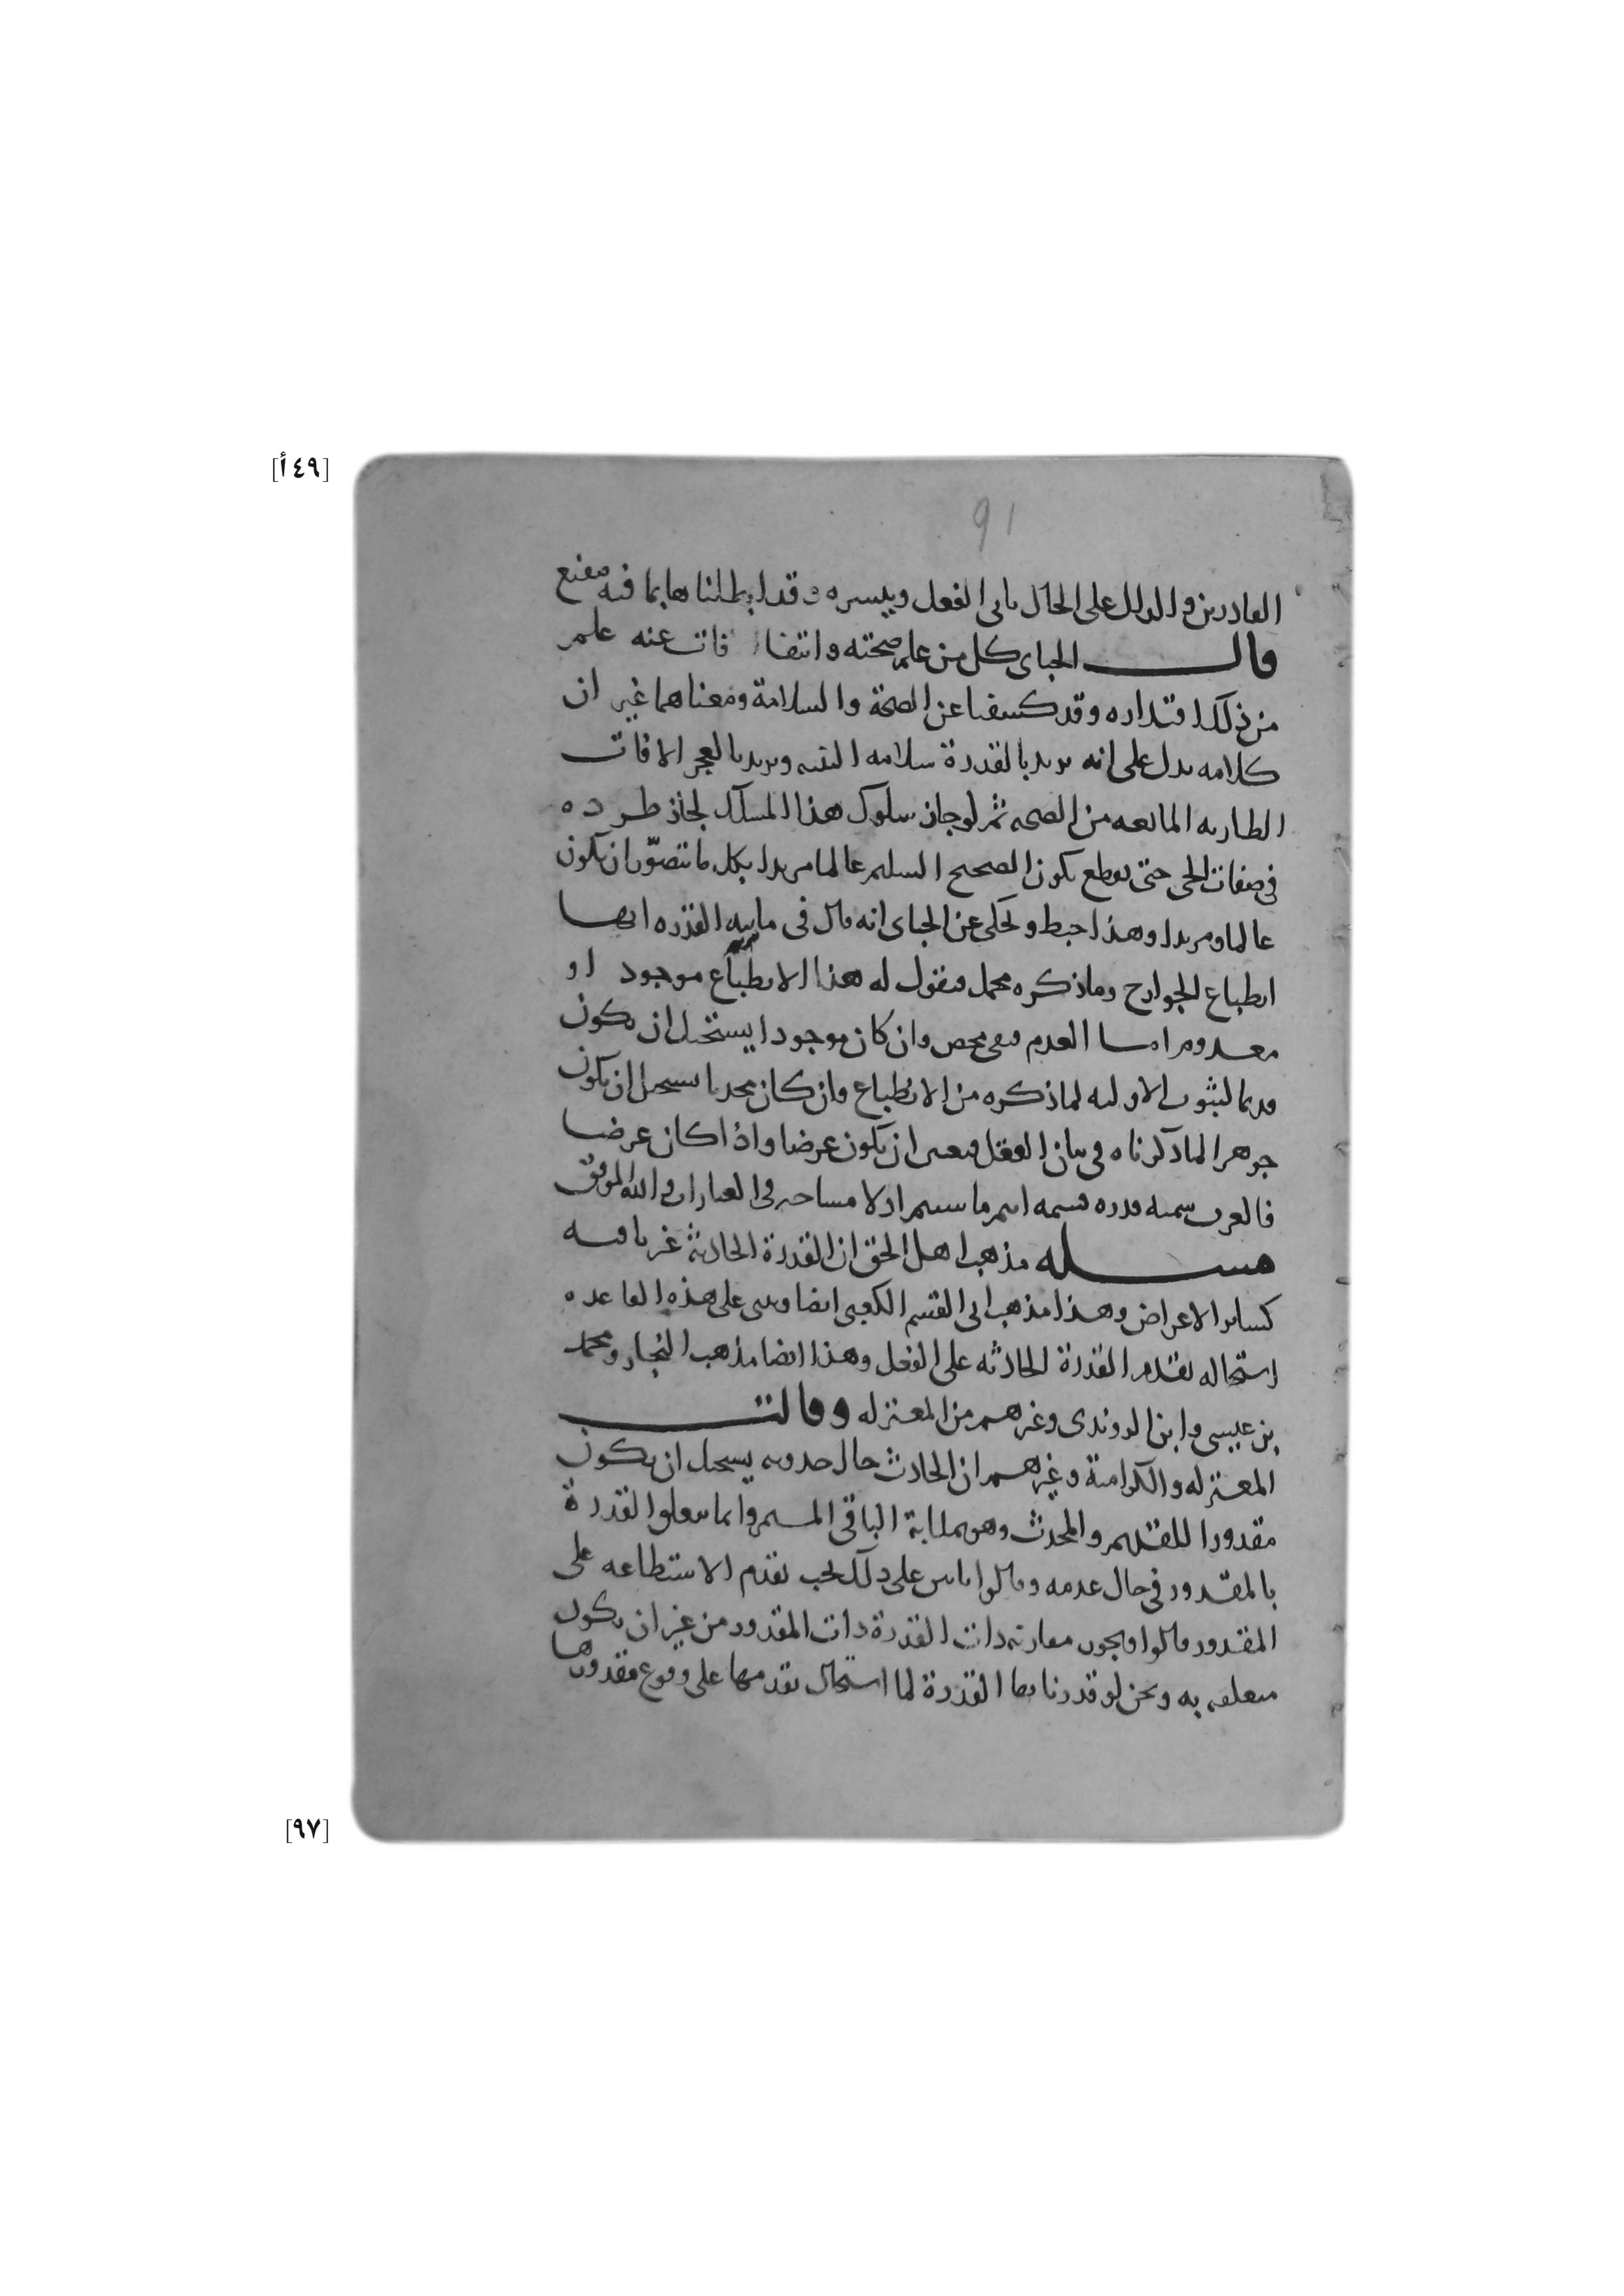 [٤٩أ]
٩١
القادرين والدليل على الحال تاتي الفعل وتيسره وقد ابطلناها بما فيه مقنع
قال الجباى كل من علم صحته وانتفا فات عنه علم
من ذلك اقتداره وقد كسفنا عن الصحة والسلامة ومعناهما غير ان
كلامه يدل على انه يريد بالقدرة سلامه البنيه ويريد بالعجز الافات
الطاريه المانعه من الصحه ثم لو جاز سلوك هذا المسلك لجاز طرده
في صفات الحي حتى يقطع بكون الصحيح السليم عالما مريدا بكل ما يتصور ان يكون
عالما ومريدا وهذا خبط ويحكى عن الجباى انه قال في مايية القدره انها
انطباع الجوارح وما ذكره مجمل فنقول له هذا الانطباع موجود او
معدوم اما العدم فنفي محض وان كان موجودا يستحيل ان يكون
قديما لثبوت الاوليه لما ذكره من الانطباع وان كان محدثا يستحيل ان يكون
جوهرا لما ذكرناه في بيان العقل فتعين ان يكون عرضا واذا كان عرضا
فالعرب سميه قدره فسمه انت ما سيت اذ لا مشاحه في العبارات والله الموفق
مسله مذهب اهل الحق ان القدرة الحادثة غير باقيه
كساير الاعراض وهذا مذهب ابي القسم الكعبى ايضا ويبنى على هذه القاعده
استحاله تقدم القدرة الحادثه على الفعل وهذا ايضا مذهب النجار ومحمد
بن عيسى وابن الروندى وغيرهم من المعتزله وقالت
المعتزله والكرامية وغيرهم ان الحادث حال حدوثه يستحيل ان يكون
مقدورا للقديم والمحدث وهو بمثابة الباقى المستمر وانما تتعلق القدرة
بالمقدور في حال عدمه وقالوا بناء على ذلك يجب تقدم الاستطاعه على
المقدور قالوا ويجوز مقارنه ذات القدرة ذات المقدور من غير ان يكون
متعلقه به ونحن لو قدرنا بقا القدرة لما استحال تقدمها على وقوع مقدورها
[٩٧]